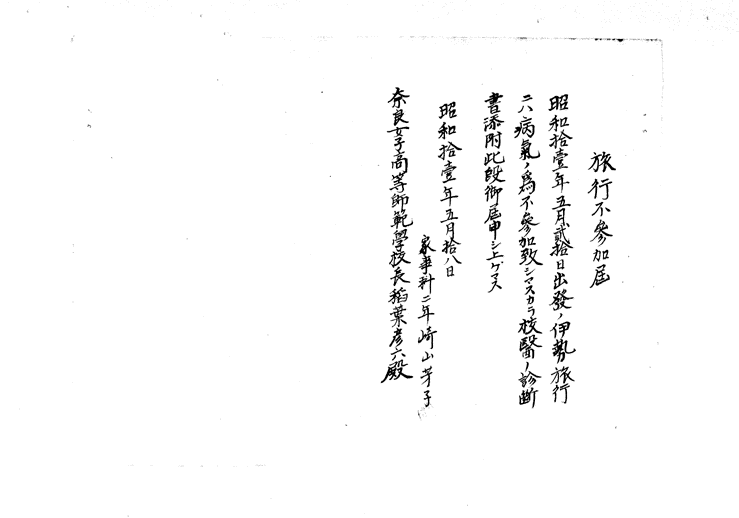 旅行不參加届
昭和拾壹年五月貳拾日出發ノ伊勢旅行
ニハ病氣ノ爲不參加致シマスカラ校醫ノ診断
書添附此段御届申シ上ゲマス
昭和拾壹年五月拾八日
家事科二年崎山芽子
奈良女子高等師範學校長稻葉彦六殿